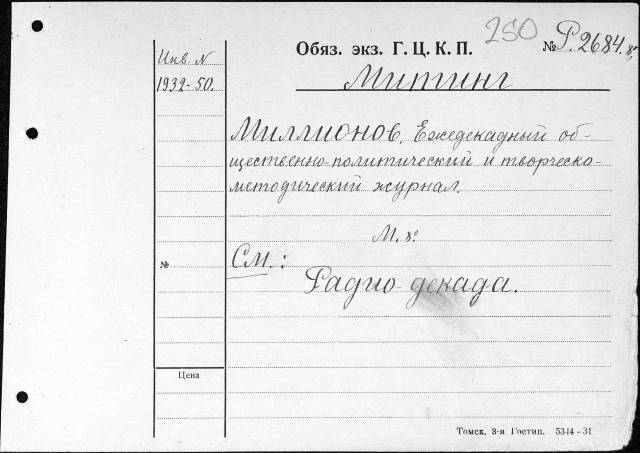 250
Обяз. экз. Г. Ц. К. П. № Р. 2684. 8º
Инв. N
1932-50.
Митинг
Миллионов. Ежедекадный об-
щественно-политический и творческо-
методический журнал.
М. 8º
№
См.:
Радио-декада.
Цена
Томск. 3-я Гостип. 5344-31